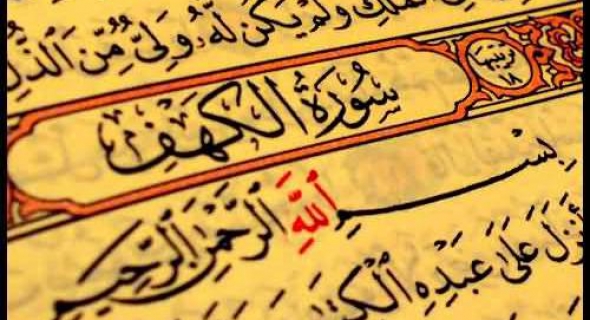 ٱلْمُلْكِ وَلَمْ يَكُن لَّهُۥ وَلِىٌّ مِّنَ ٱلذُّلِّ
سُورَةُ الكَهْفِ
ترتيبها ١٨
بِسْمِ ٱللَّهِ ٱلرَّحْمَٰنِ ٱلرَّحِيمِ
أَنزَلَ عَلَىٰ عَبْدِهِ ٱلْكِتَٰبَ